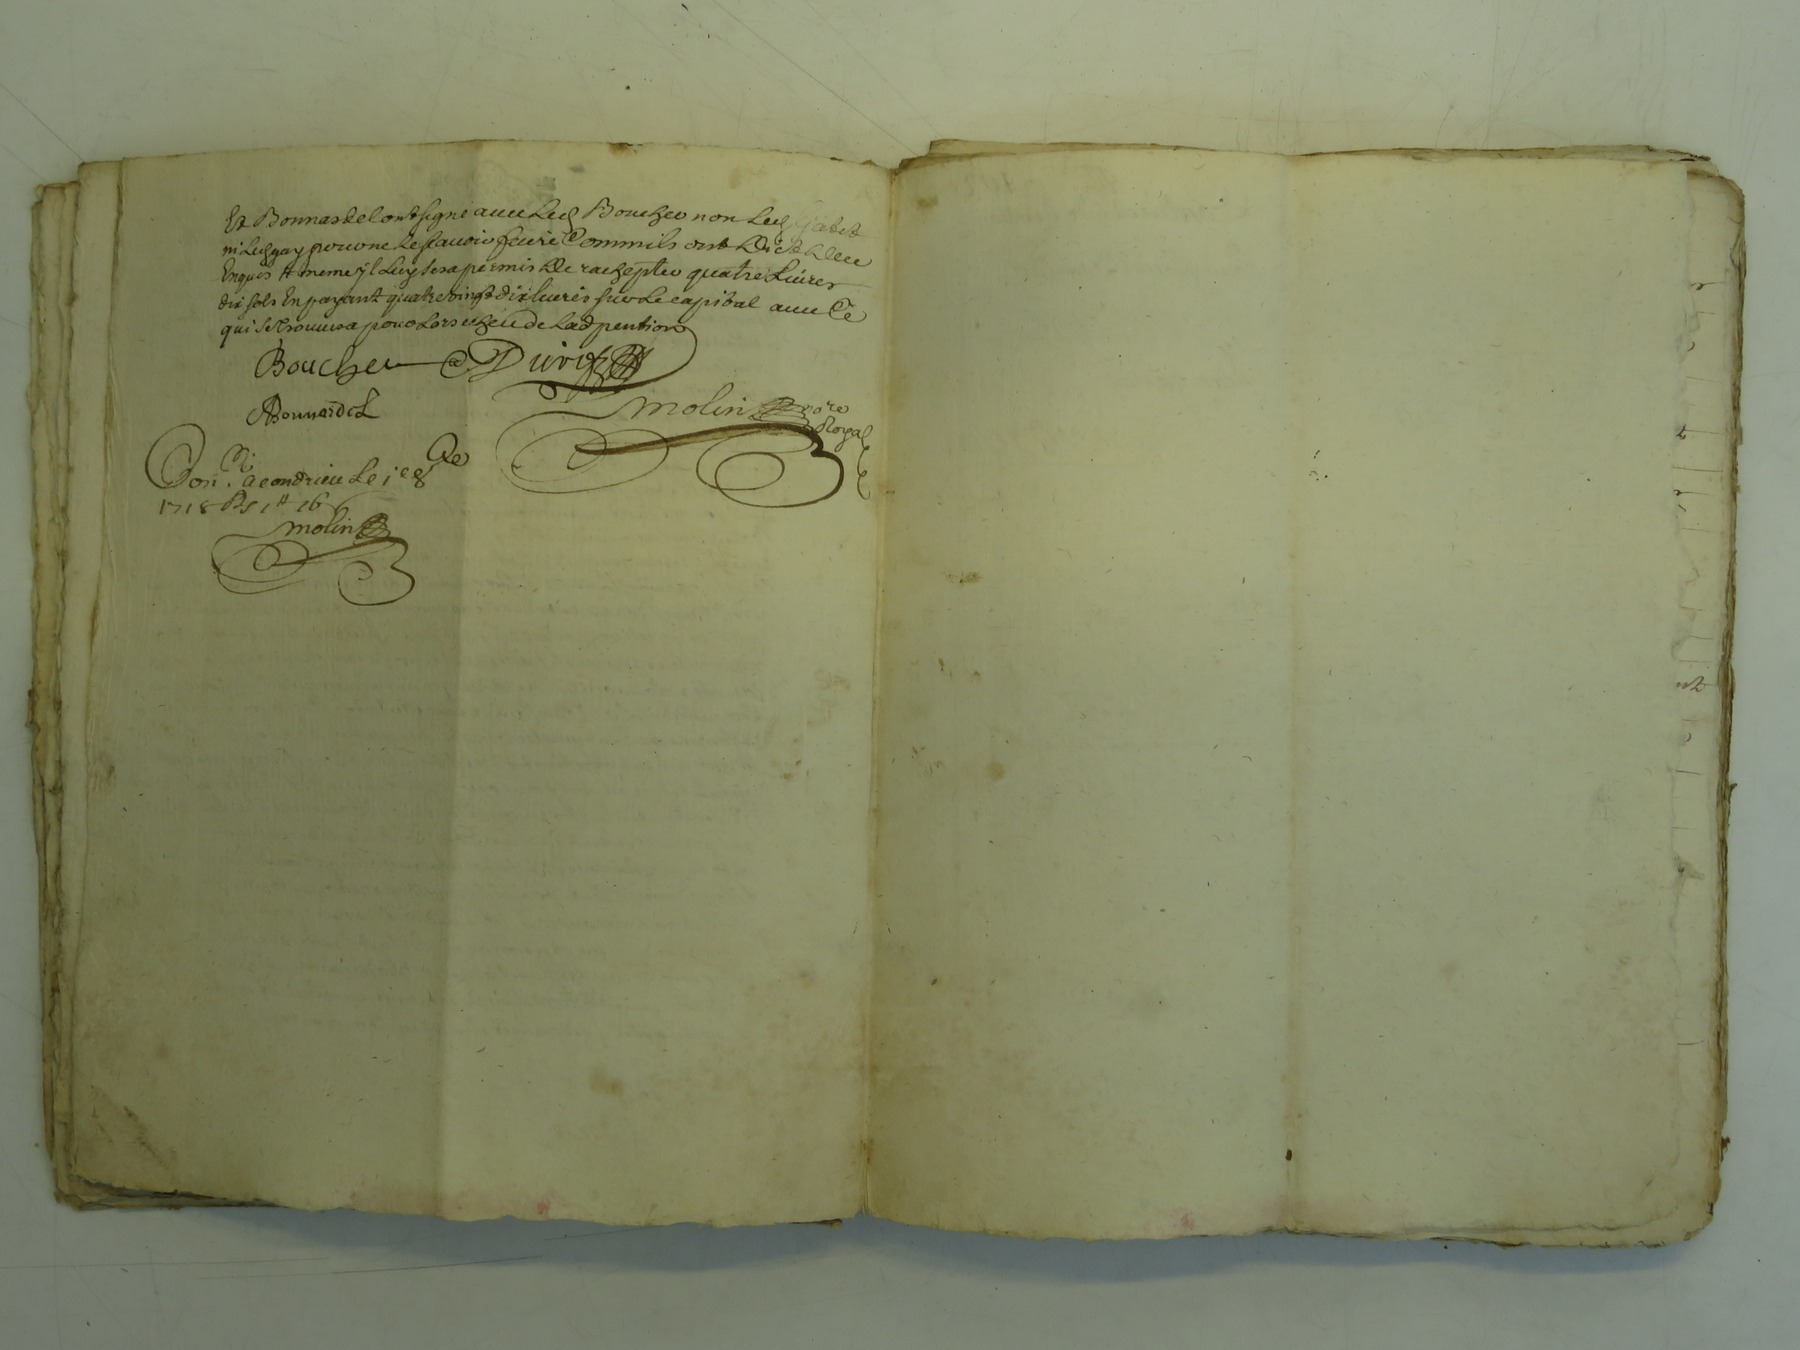 Et Bonnardel ont signé avec led Boucher non led
ni led gay pour ne le scavoir faire Comm ils ont dict deue
Enquis Et meme jl luy sera permis de rachepter quatre Livres
dix sols En payant quatre vingt dix livres sur le capital avec Ce
qui se trouvera pour lors echeu de lad pention
Boucher Duro
Bonnardel
Molin nore
Royal
Con. a Condrieu Le 1e 8
1718 Rs 1 # 16
Molin